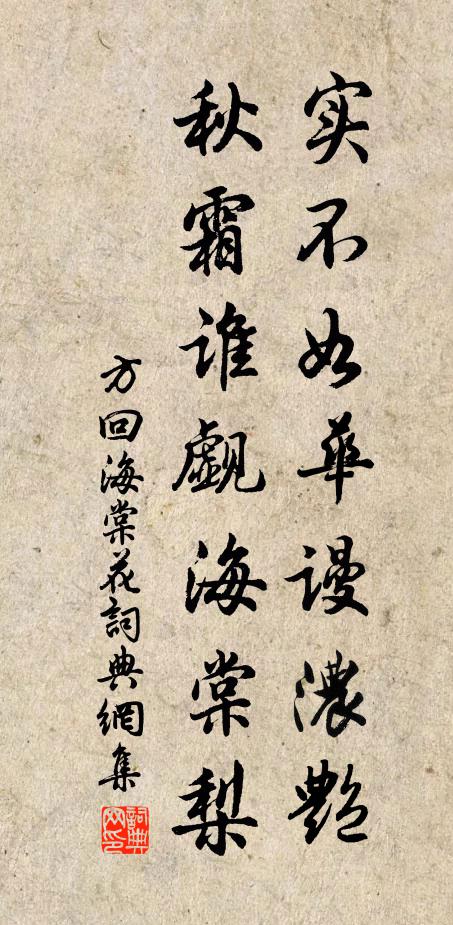 实不如华谩浓艳
秋霜谁觑海棠梨
方回海棠花詞典網集
詞典网印